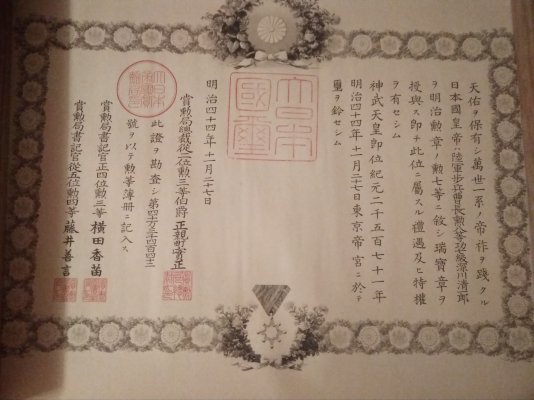 天佑ヲ保有シ萬世一系ノ帝祚ヲ踐タル
日本國皇帝ハ陸軍歩兵曹長勲八等功七級深川清一郎
ヲ明治勲章ノ勲七等ニ敘シ瑞寶章ヲ
授與ス即チ此位ニ屬スル禮遇及ヒ特權
ヲ有セシム
神武天皇即位紀元二千五百七十一年
明治四十四年十一月二十七日東京帝宮ニ於テ
璽ヲ鈐セシム
大日本國璽
明治四十四年十一月二十七日
賞勲局總裁從二位勲一等伯爵正親町實正
此證ヲ勘査シ第四十万三千四百四十二
號ヲ以テ勲等簿冊ニ記入ス
賞勲局書記官正四位勲三等横田香苗
賞勲局書記官從五位勲四等藤井善言